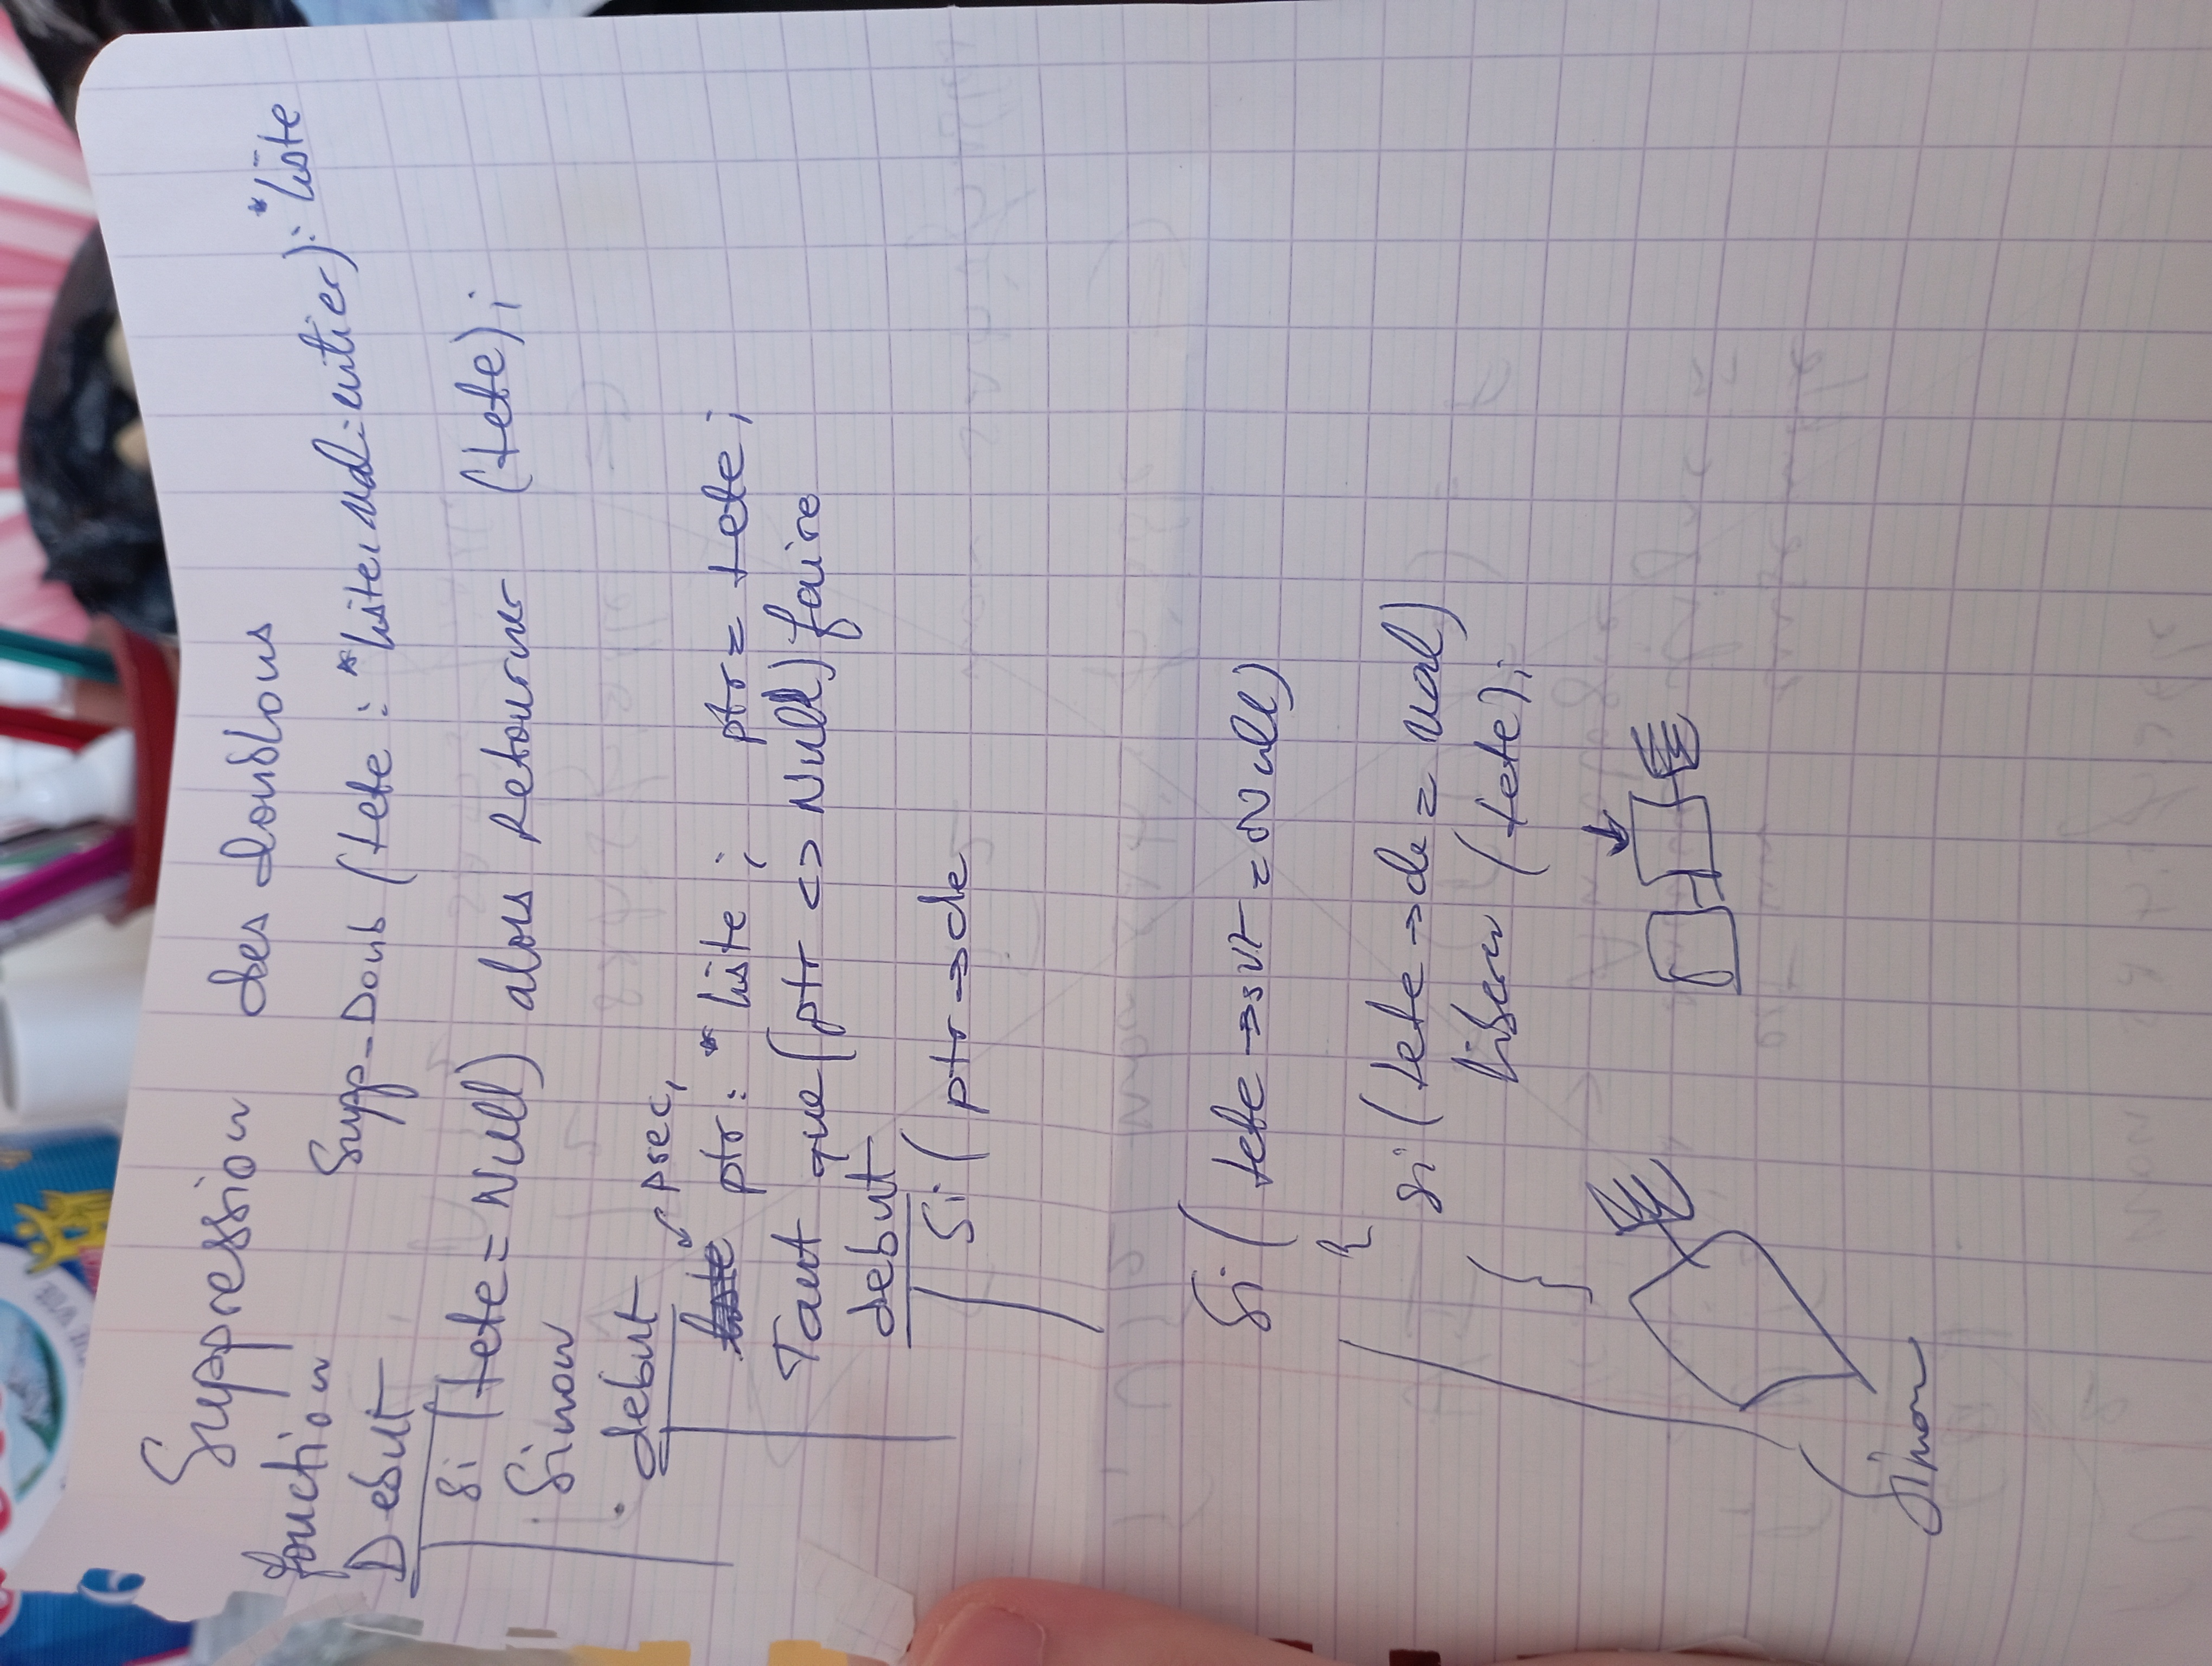 DE VIE
Suppression des doublons
fonction Supp-Doub (tete : *liste, val : entier) : *liste
Debut
Si (tete = Null) alors Retourner (tete) ;
Sinon
debut
prec,
ptr : *liste ; ptr = tete ;
Tant que (ptr <> Null) faire
debut
Si ( ptr → de
Si ( tete → svt = Null)
{
si ( tete → de = val)
liberer (tete) ;
}
Sinon